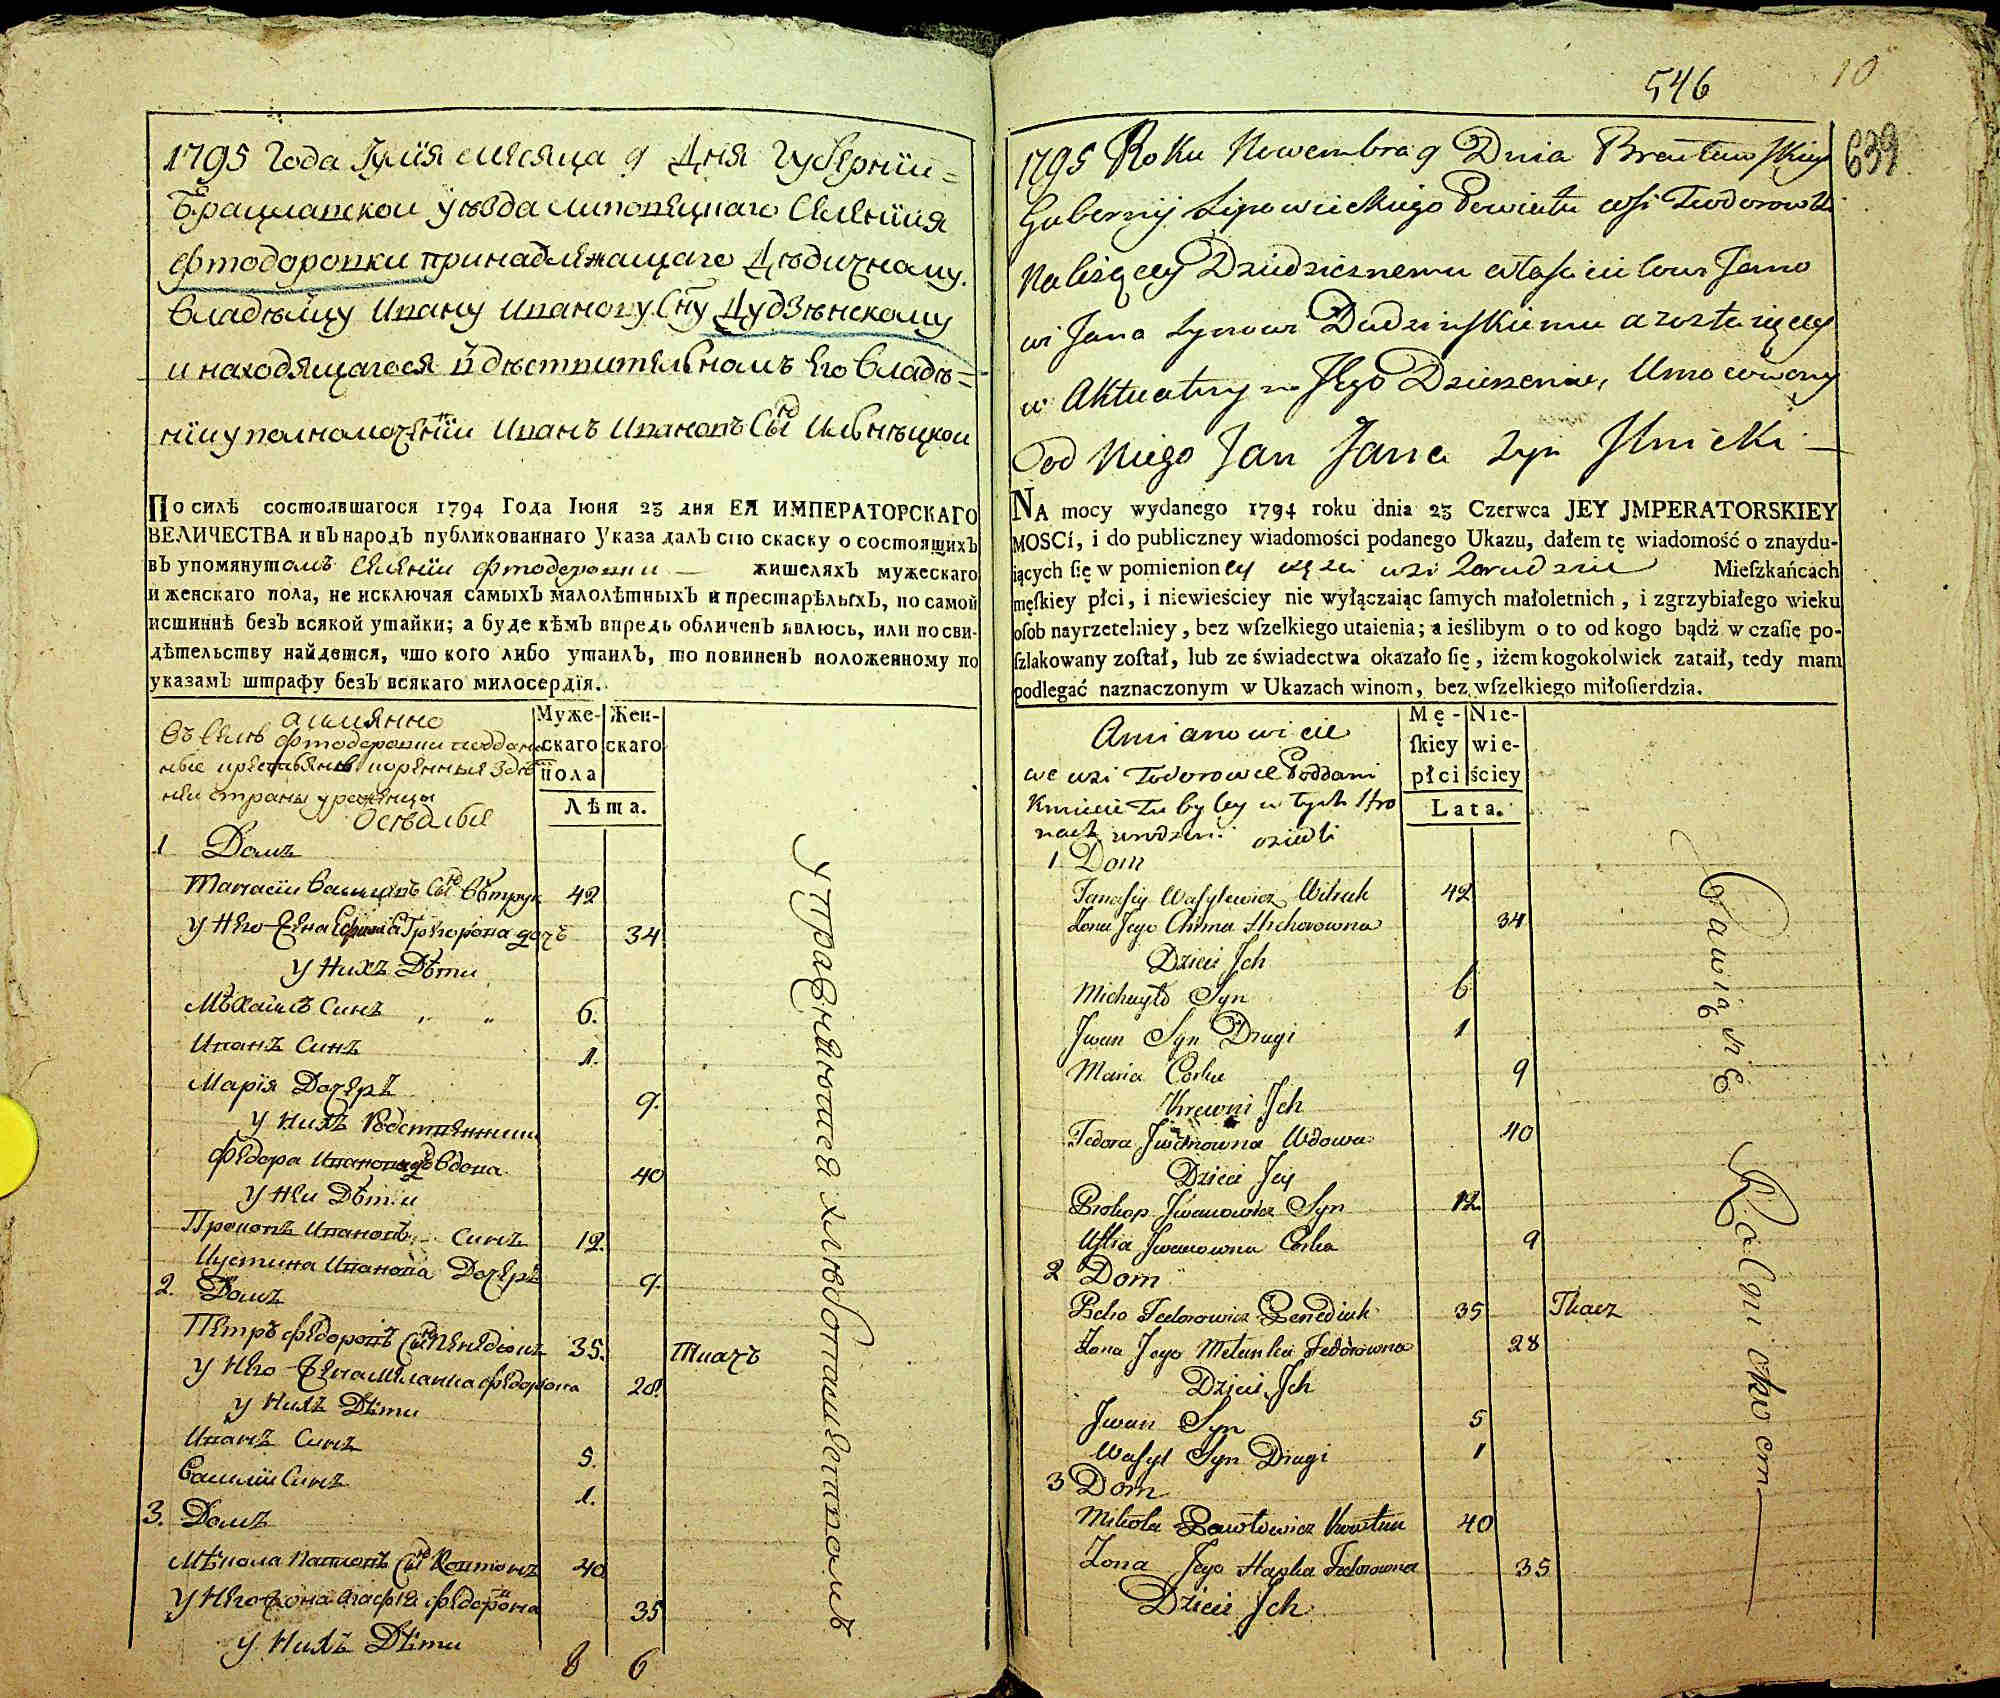 1795 Года Іулія месяца 9 Дня Губернїи=
Брацлавской уѣзда липовецкаго Селенїия
Фтодоровки принадлежащаго Дѣдичному
владѣлцу Ивану Иванову Сну Дудзѣнскому
и находящагося в дѣствительномъ Его владѣ=
нїи уполномоченїи Иванъ Ивановъ Сынъ Ильнѣцкой
По силѣ состоявшагося 1794 Года Іюня 23 дня ЕЯ ИМПЕРАТОРСКАГО
ВЕЛИЧЕСТВА и въ народъ публикованнаго Указа далъ сію скаску о состоящихъ
въ упомянутомъ Селенїи Фтодоровки — жителяхъ мужескаго
и женскаго пола, не исключая самыхъ малолѣтныхъ и престарѣлыхъ, по самой
истиннѣ безъ всякой утайки; а буде кѣмъ впредь обличенъ явлюсь, или по сви-
дѣтельству найдется, что кого либо утаилъ, то повиненъ положенному по
указамъ штрафу безъ всякаго милосердїя.
аимянно
Въ Селѣ Фтодоровки поддан
ные крестьяне коренные здѣ
ней страны уроженцы
Оседлые
Муже-скаго пола
Жен-скаго
Лѣта.
1 Домъ
Танасїи Василивъ Сынъ Вѣтрук 42
у Него Жена Григорова дочъ 34
у Нихъ Дѣти
Мѣхаило Синъ 6.
Иванъ Синъ 1.
Марїя Дочеръ 9.
у Нихъ Родственники
Федора Иванова вдова 40
у Неи Дѣти
Прокопъ Ивановъ Синъ 12.
Иустина Иванова Дочеръ 9.
2. Домъ
Петръ Федоровъ Сынъ Бенедюкъ 35. Ткачъ
у Него Жена Меланка Федорова 28.
у Нихъ Дѣти
Иванъ Синъ 5.
Василии Синъ 1.
3. Домъ
Мѣкола Павловъ Сынъ Ковтонъ 40
у Него Жона Агафїя Федорова 35
у Нихъ Дѣти
8 6
упражняются хлѣбопашеством
546
10
639
1795 Roku Nowembra 9 Dnia Bracławskiey
Gubernij Lipowieckiego Powiatu wsi Todorowki
Należącey Dziedzicznemu właścicielowi Jano
wi Jana Synowi Dudzinskiemu a zostaiącey
w Aktualnym Jego Dzierzeniu, Umocowany
Od Niego Jan Jana Syn Ilnicki —
NA mocy wydanego 1794 roku dnia 23 Czerwca JEY JMPERATORSKIEY
MOSCi, i do publiczney wiadomości podanego Ukazu, dałem tę wiadomość o znaydu-
iących ſię w pomienioney Mieſzkańcach
męſkiey płci, i niewieściey nie wyłączaiąc ſamych małoletnich, i zgrzybiałego wieku
oſob nayrzetelniey, bez wſzelkiego utaienia; a ieślibym o to od kogo bądź w czaſie po-
ſzlakowany zoſtał, lub ze świadectwa okazało ſię, iżem kogokolwiek zataił, tedy mam
podlegać naznaczonym w Ukazach winom, bez wſzelkiego miłoſierdzia.
Amianowicie
we wsi Todorowce Poddani
Kmiecie Tu byley w tych Stro
nach urodzeni osiedli
Mę-ſkiey płci
Nie-wie-ściey
Lata.
1 Dom
Tanasiy Wasylewicz Witruk 42
Zona Jego Chima Hrehorowna 34
Dzieci Jch
Michayło Syn 6
Jwan Syn Drugi 1
Maria Corka 9
Krewni Jch
Fedora Jwanowna Wdowa 40
Dzieci Jey
Prokop Jwanowicz Syn 12
Ustia Jwanowna Corka 9
2 Dom
Petro Fedorowicz Benediuk 35 Tkacz
Zona Jego Melanka Fedorowna 28
Dzieci Jch
Jwan Syn 5
Wasyl Syn Drugi 1
3 Dom
Mikola Pawłowicz Kowtun 40
Zona Jego Hapka Fedorowna 35
Dzieci Jch
Bawią się Rolnictwem